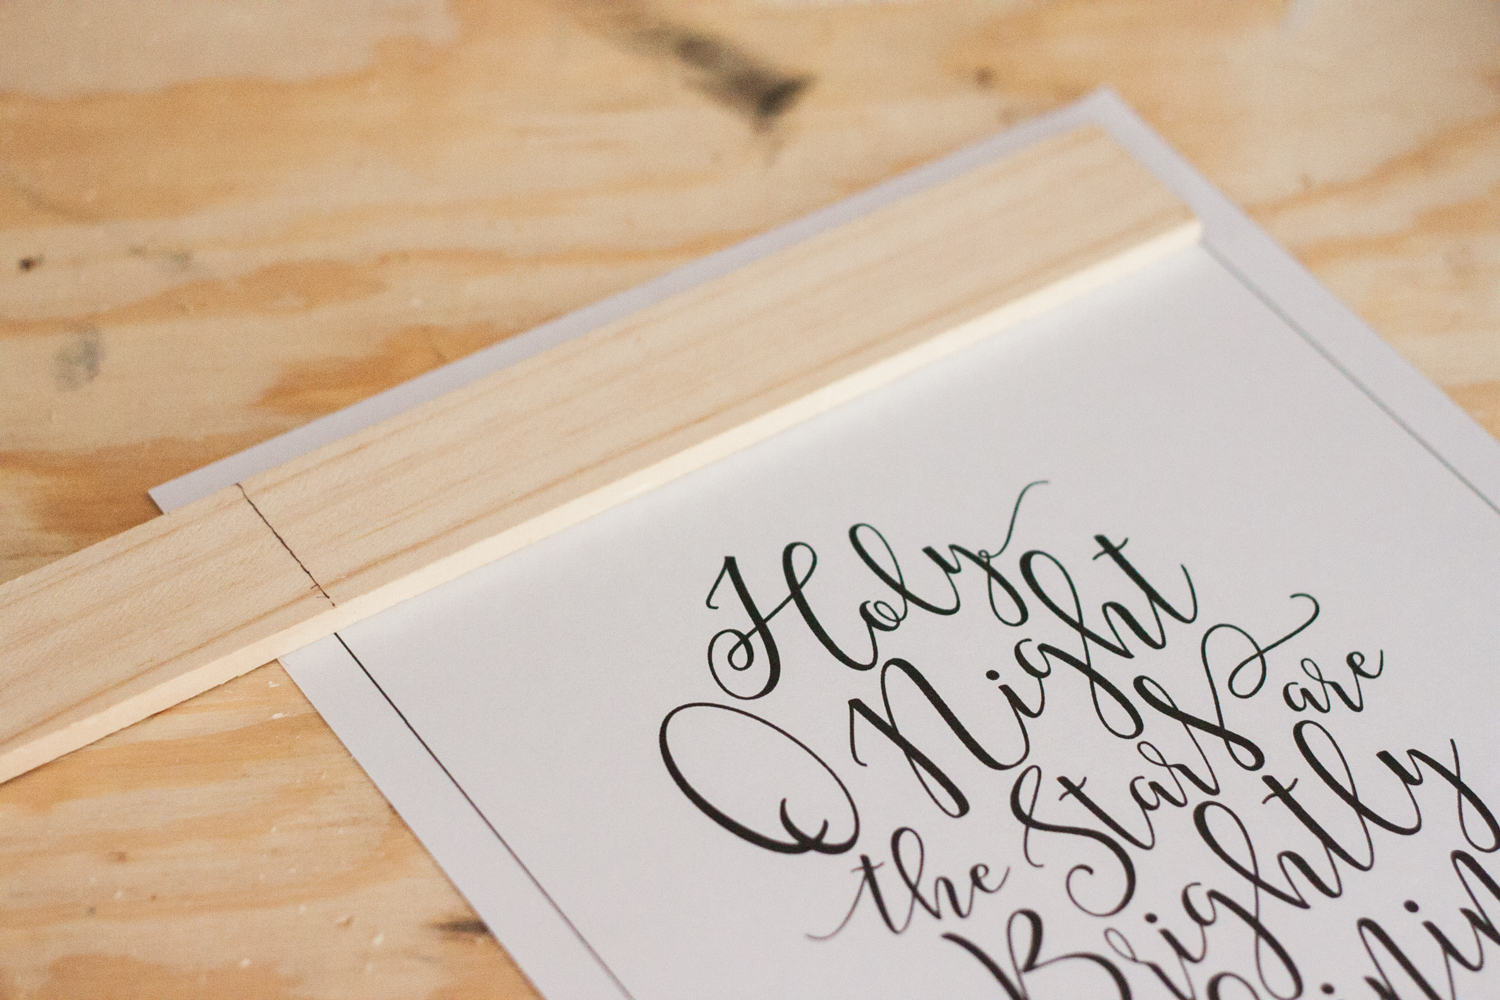 Holy
O Night
the Stars are
Brightly